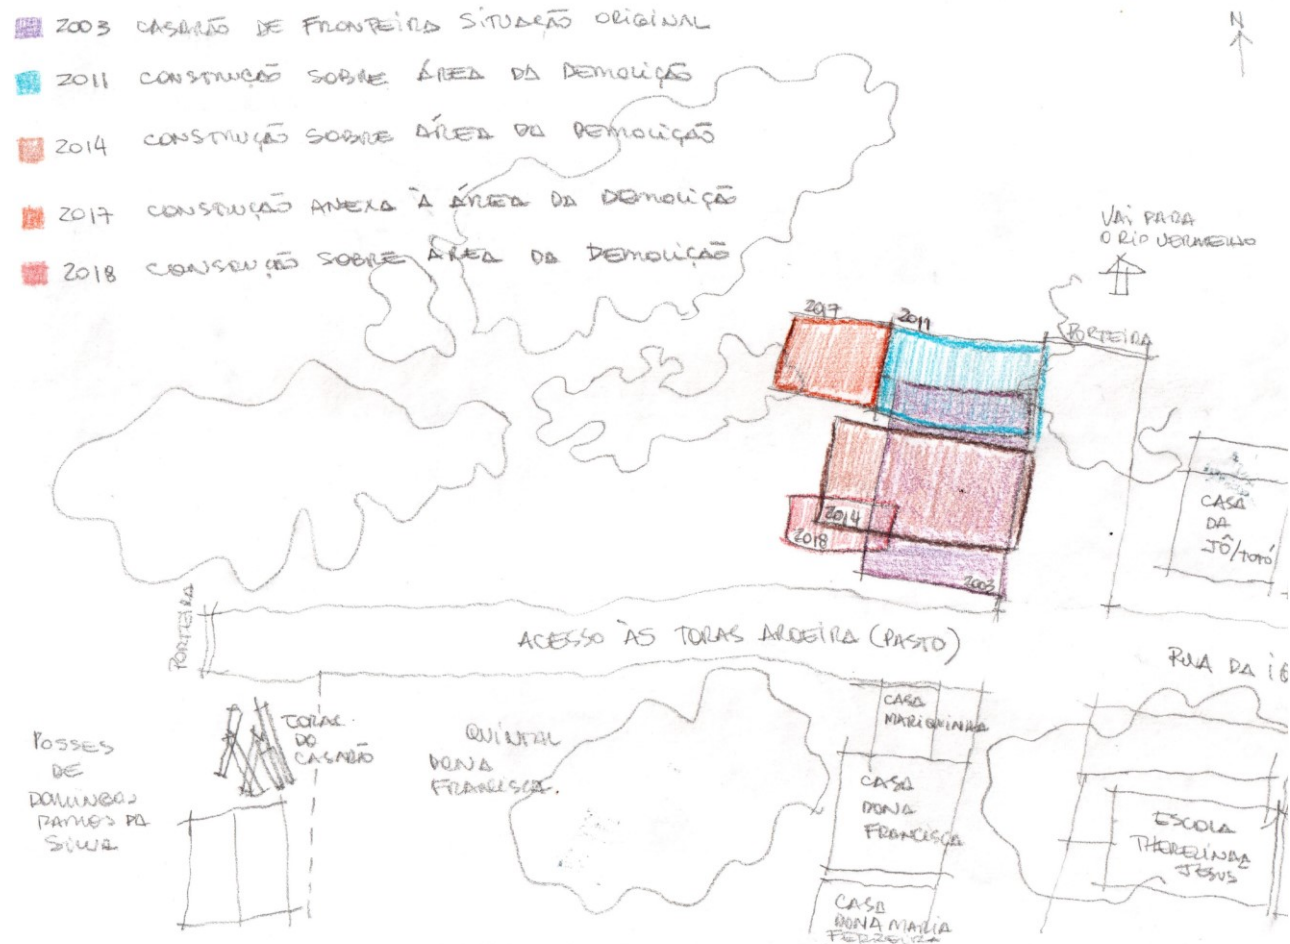 2003 CASARÃO DE FRONTEIRA SITUAÇÃO ORIGINAL
2011 CONSTRUÇÃO SOBRE ÁREA DA DEMOLIÇÃO
2014 CONSTRUÇÃO SOBRE ÁREA DA DEMOLIÇÃO
2017 CONSTRUÇÃO ANEXA À ÁREA DA DEMOLIÇÃO
2018 CONSRUÇÃO SOBRE ÁREA DA DEMOLIÇÃO
N
VAI PARA
O RIO VERMELHO
PORTEIRA
2017
2011
2014
2018
2003
CASA
DA
JÔ/TOTÓ
PORTEIRA
ACESSO ÀS TORAS AROEIRA (PASTO)
RUA DA IG
POSSES
DE
DOMINGOS
RAMOS DA
SILVA
TORAS
DO
CASARÃO
QUINTAL
DONA
FRANCISCA.
CASA
MARIQUINHA
CASA
DONA
FRANCISCA
CASA
DONA MARIA
ESCOLA
JESUS